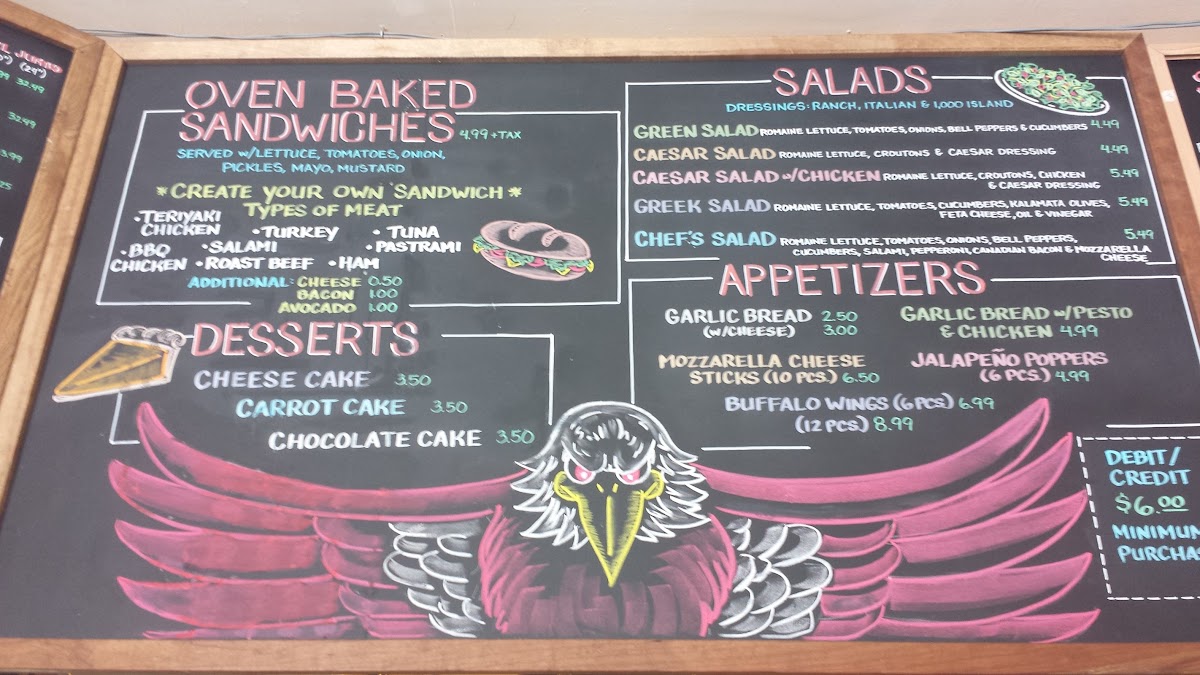 32.49
32.49
OVEN BAKED
SANDWICHES 4.99 + TAX
SERVED W/LETTUCE, TOMATOES, ONION,
PICKLES, MAYO, MUSTARD
*CREATE YOUR OWN SANDWICH*
TYPES OF MEAT
• TERIYAKI CHICKEN • TURKEY • TUNA
• BBQ CHICKEN • SALAMI • PASTRAMI
• ROAST BEEF • HAM
ADDITIONAL: CHEESE 0.50
BACON 1.00
AVOCADO 1.00
DESSERTS
CHEESE CAKE 3.50
CARROT CAKE 3.50
CHOCOLATE CAKE 3.50
SALADS
DRESSINGS: RANCH, ITALIAN & 1,000 ISLAND
GREEN SALAD ROMAINE LETTUCE, TOMATOES, ONIONS, BELL PEPPERS & CUCUMBERS 4.49
CAESAR SALAD ROMAINE LETTUCE, CROUTONS & CAESAR DRESSING 4.49
CAESAR SALAD W/CHICKEN ROMAINE LETTUCE, CROUTONS, CHICKEN 5.49
& CAESAR DRESSING
GREEK SALAD ROMAINE LETTUCE, TOMATOES, CUCUMBERS, KALAMATA OLIVES, 5.49
FETA CHEESE, OIL & VINEGAR
CHEF'S SALAD ROMAINE LETTUCE, TOMATOES, ONIONS, BELL PEPPERS, 5.49
CUCUMBERS, SALAMI, PEPPERONI, CANADIAN BACON & MOZZARELLA
CHEESE
APPETIZERS
GARLIC BREAD 2.50
(W/CHEESE) 3.00
GARLIC BREAD W/PESTO
& CHICKEN 4.99
MOZZARELLA CHEESE
STICKS (10 PCS.) 6.50
JALAPEÑO POPPERS
(6 PCS.) 4.99
BUFFALO WINGS (6 PCS) 6.99
(12 PCS.) 8.99
DEBIT/
CREDIT
$6.00
MINIMUM
PURCHA